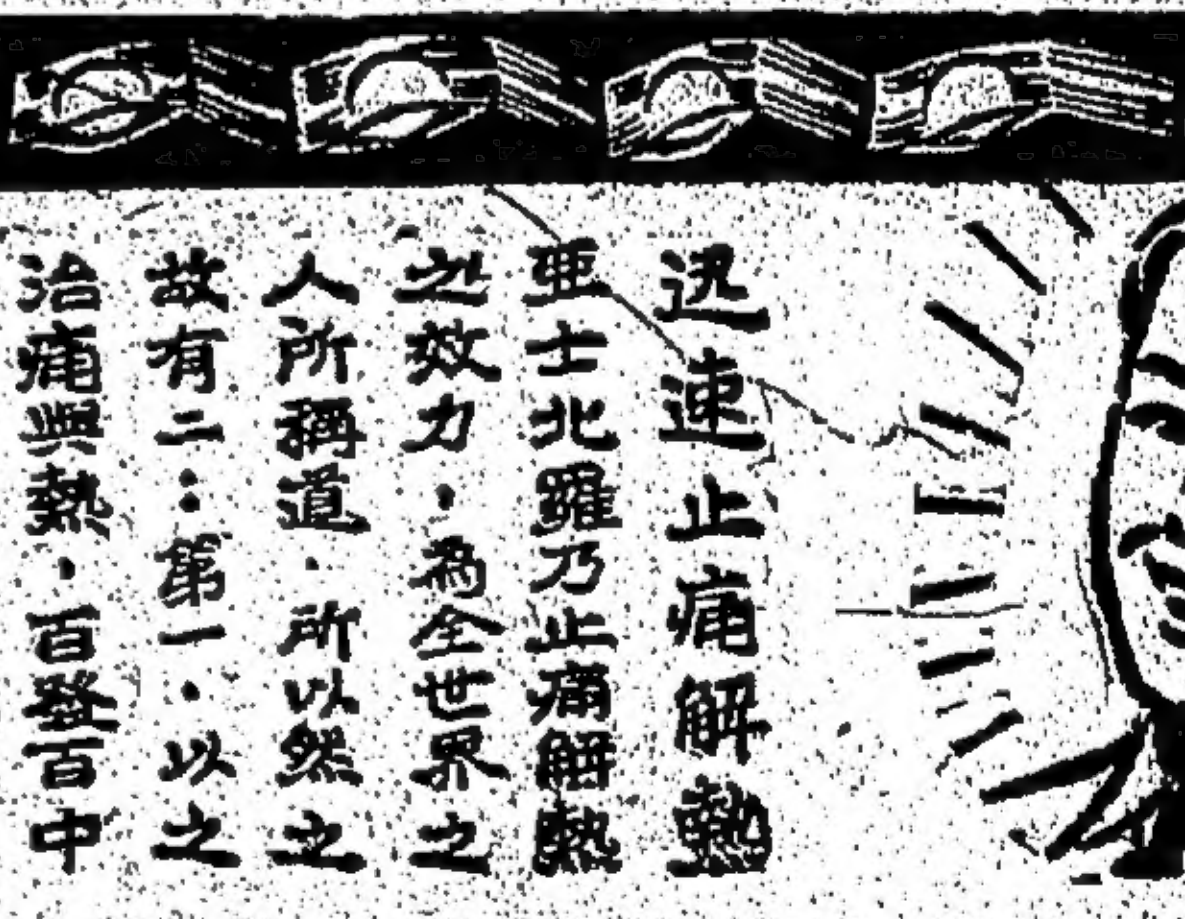 迅速止痛解熱
亞士北羅乃止痛解熱
之效力．為全世界之
人所稱道．所以然之
故有二：第一．以之
治痛與熱．百發百中